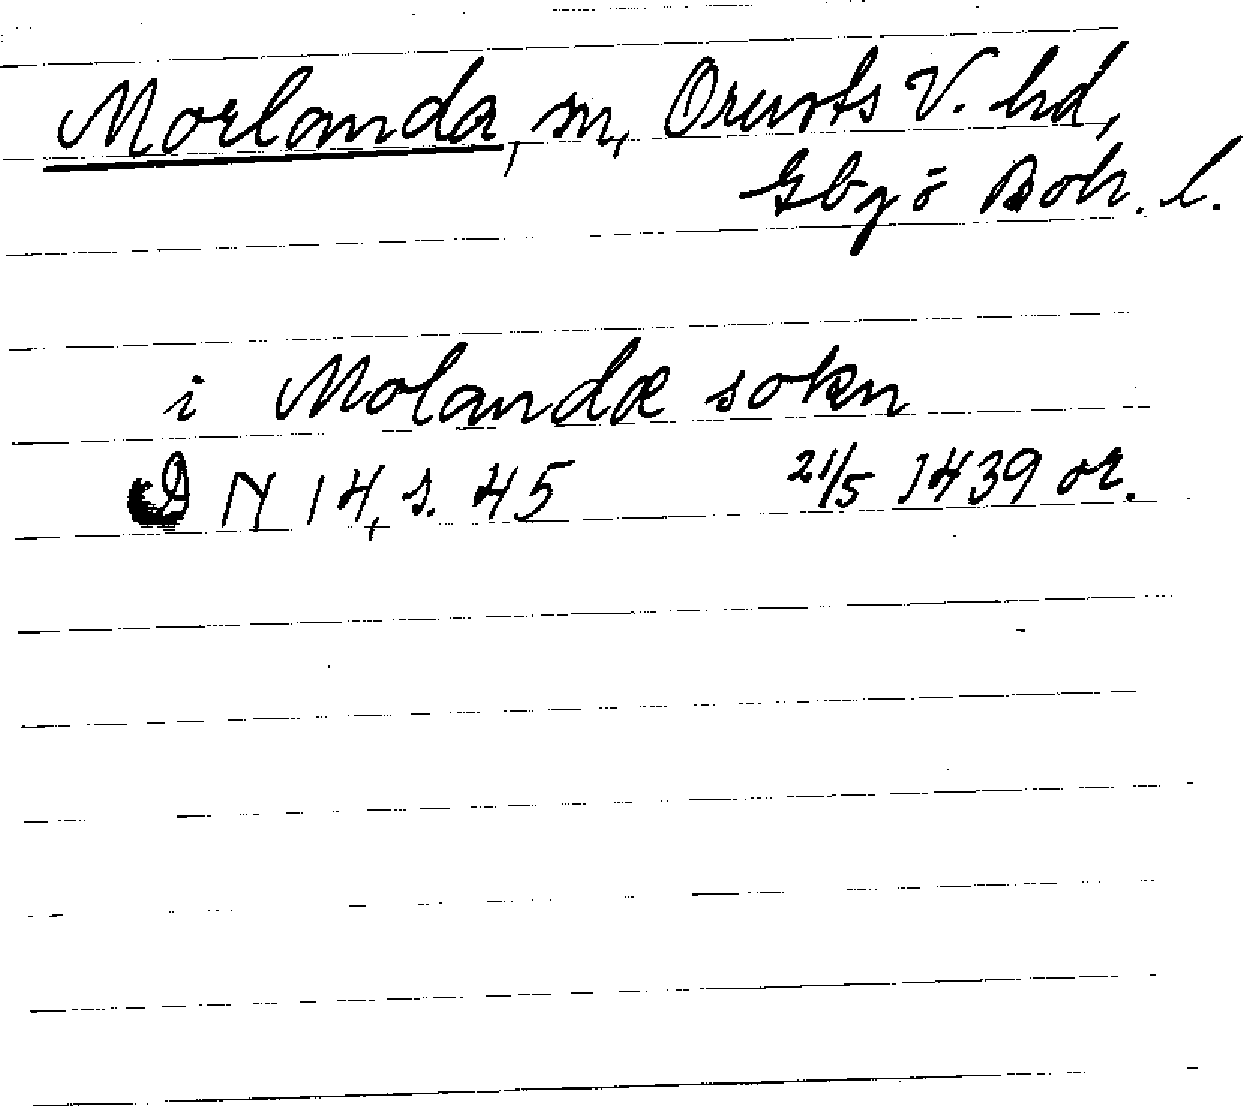 Morlanda, sn, Orusts V. hd,
Gbg o Boh. l.
i Molandæ sokn
DN 14, s. 45 21/5 1439 or.